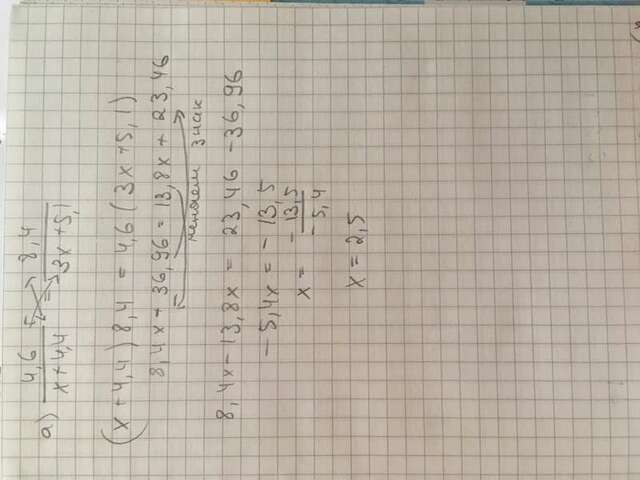 а) 4,6/(x+4,4) = 8,4/(3x+5,1)
(x+4,4)8,4 = 4,6(3x+5,1)
8,4x+36,96=13,8x+23,46
меняем знак
8,4x-13,8x = 23,46-36,96
-5,4x = -13,5
x = -13,5/-5,4
x = 2,5